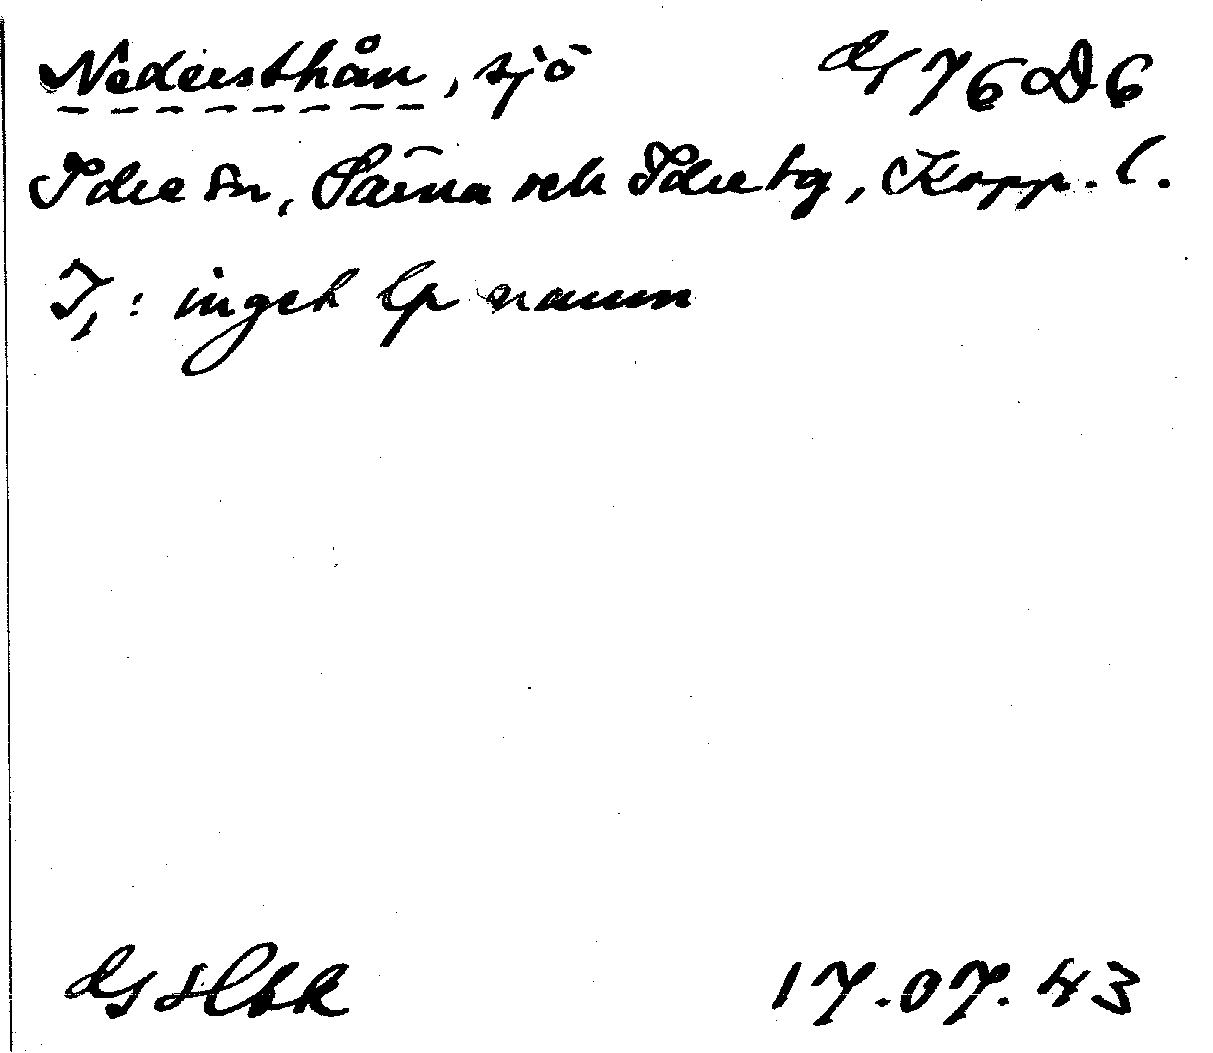 Nedersthån, sjö 76D6
Idre sn, Särna och Idre tg, Kopp. l.
J,: inget lp namn
17.07.43